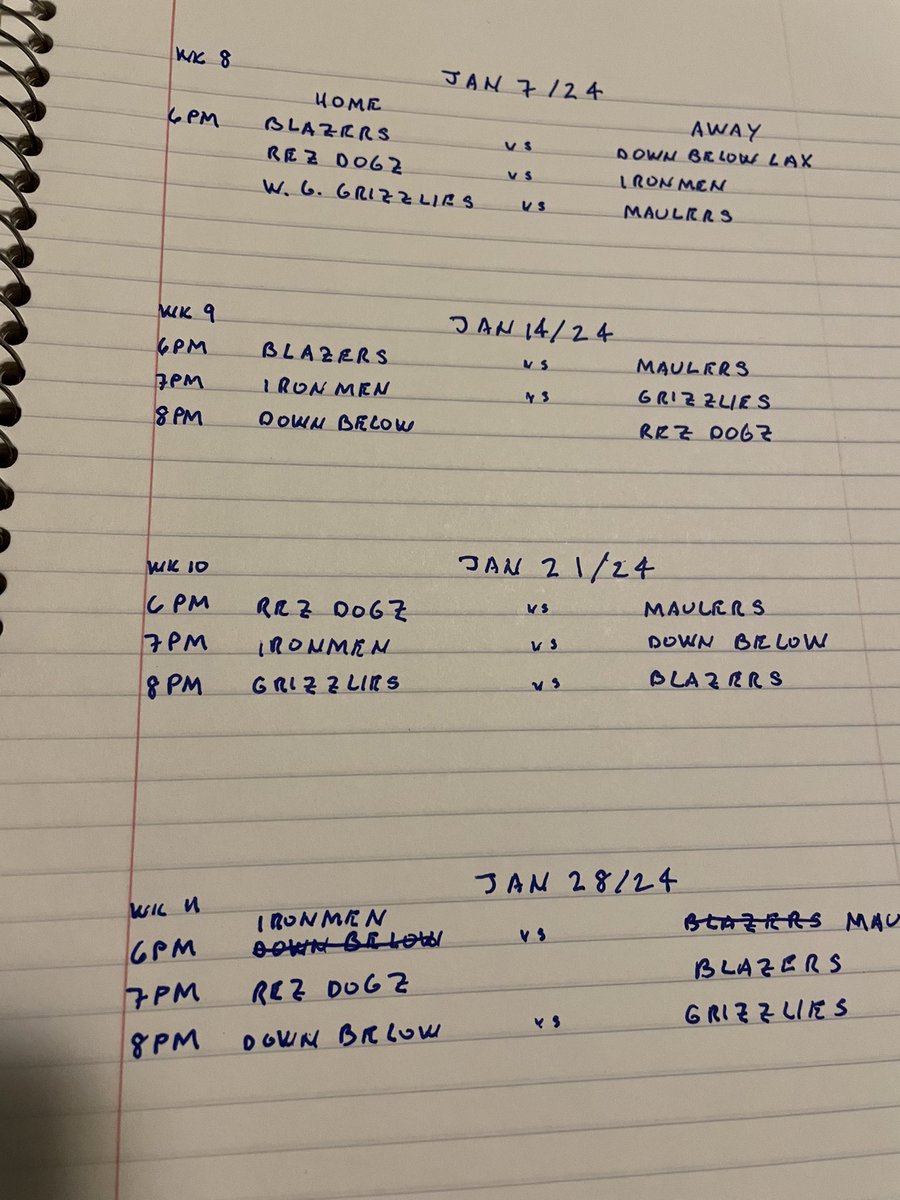 WK 8 JAN 7/24
HOME AWAY
6PM BLAZERS vs DOWN BELOW LAX
REZ DOGZ vs IRONMEN
W. G. GRIZZLIES vs MAULERS
WK 9 JAN 14/24
6PM BLAZERS vs MAULERS
7PM IRONMEN vs GRIZZLIES
8PM DOWN BELOW REZ DOGZ
WK 10 JAN 21/24
6PM REZ DOGZ vs MAULERS
7PM IRONMEN vs DOWN BELOW
8PM GRIZZLIES vs BLAZERS
WK 11 JAN 28/24
IRONMEN
6PM DOWN BELOW vs BLAZERS MAU
7PM REZ DOGZ BLAZERS
8PM DOWN BELOW vs GRIZZLIES